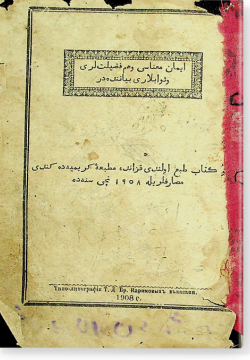 ایمان معناسی وهم فضیلت لری
وثوابلاری بیاننده در
کتاب طبع اولندی قزانده مطبعۀ کریمیه ده کندی
مصارفلریله ١٩٠٨ نچی سنه ده
Типо-литографія Т. Д. Бр. Каримовыхъ въ Казани.
1908 г.